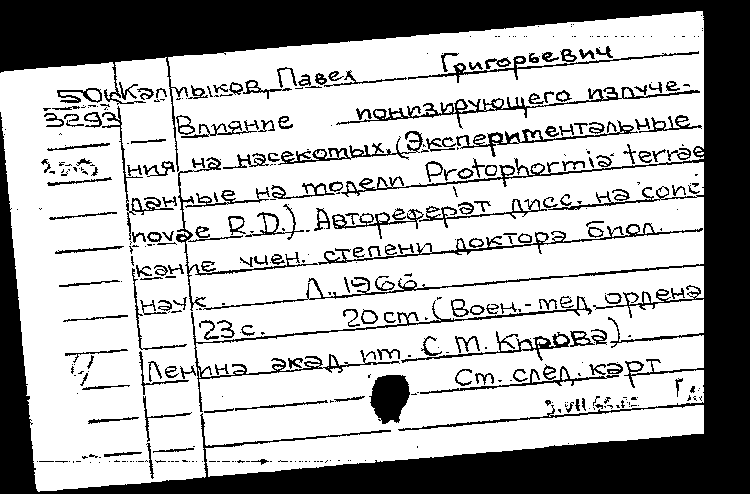 50к Калмыков, Павел Григорьевич
3293 Влияние ионизирующего излуче-
250 ния на насекомых. (Экспериментальные
данные на модели Protophormia terrae
novae R.D.) Автореферат дисс. на соис-
кание учен. степени доктора биол.
наук. Л., 1966.
23 с. 20 см. (Воен.-мед. ордена
Ленина акад. им. С. М. Кирова).
См. след. карт